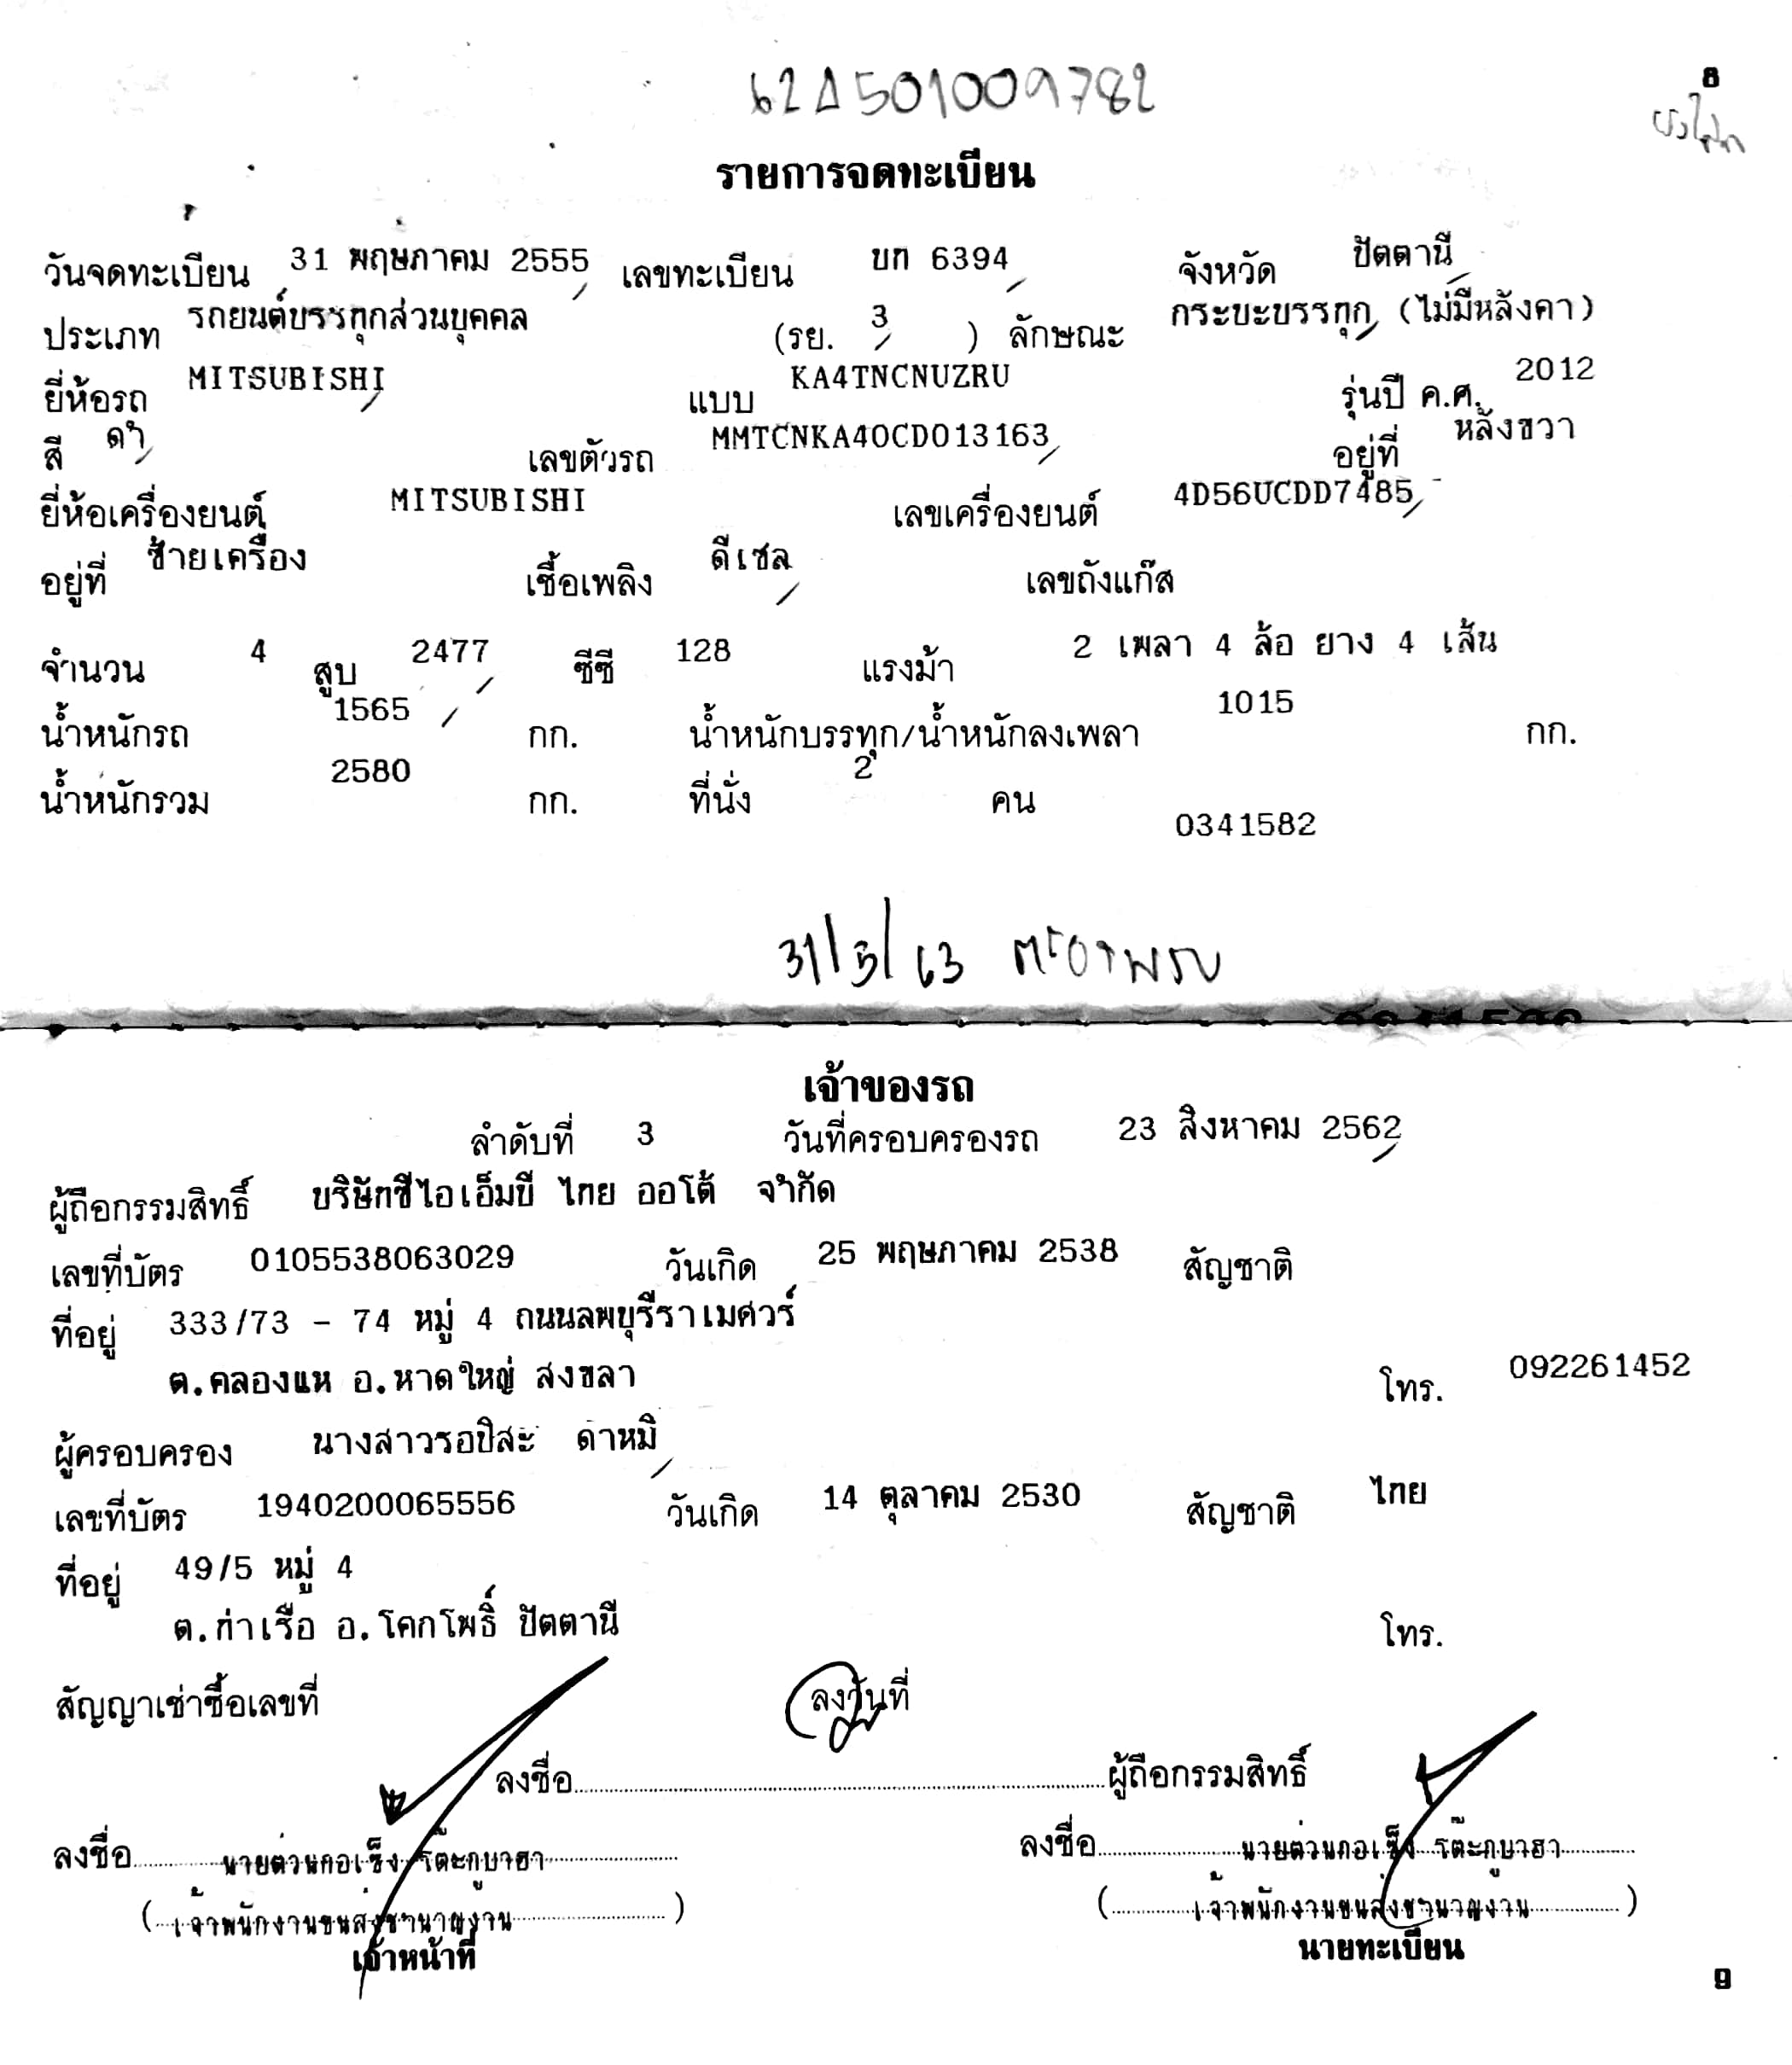 62A501009782
8
รายการจดทะเบียน
วันจดทะเบียน 31 พฤษภาคม 2555 เลขทะเบียน บก 6394 จังหวัด ปัตตานี
ประเภท รถยนต์บรรทุกส่วนบุคคล (รย. 3 ) ลักษณะ กระบะบรรทุก (ไม่มีหลังคา)
ยี่ห้อรถ MITSUBISHI แบบ KA4TNCNUZRU รุ่นปี ค.ศ. 2012
สี ดำ เลขตัวรถ MMTCNKA40CD013163 อยู่ที่ หลังขวา
ยี่ห้อเครื่องยนต์ MITSUBISHI เลขเครื่องยนต์ 4D56UCDD7485
อยู่ที่ ซ้ายเครื่อง เชื้อเพลิง ดีเซล เลขถังแก๊ส
จำนวน 4 สูบ 2477 ซีซี 128 แรงม้า 2 เพลา 4 ล้อ ยาง 4 เส้น
น้ำหนักรถ 1565 กก. น้ำหนักบรรทุก/น้ำหนักลงเพลา 1015 กก.
น้ำหนักรวม 2580 กก. ที่นั่ง 2 คน
0341582
31/5/63
เจ้าของรถ
ลำดับที่ 3 วันที่ครอบครองรถ 23 สิงหาคม 2562
ผู้ถือกรรมสิทธิ์ บริษัทซีไอเอ็มบี ไทย ออโต้ จำกัด
เลขที่บัตร 0105538063029 วันเกิด 25 พฤษภาคม 2538 สัญชาติ
ที่อยู่ 333/73 - 74 หมู่ 4 ถนนลพบุรีราเมศวร์
ต.คลองแห อ.หาดใหญ่ สงขลา โทร. 092261452
ผู้ครอบครอง นางสาวรอปีสะ ดำหมิ
เลขที่บัตร 1940200065556 วันเกิด 14 ตุลาคม 2530 สัญชาติ ไทย
ที่อยู่ 49/5 หมู่ 4
ต.ท่าเรือ อ.โคกโพธิ์ ปัตตานี โทร.
สัญญาเช่าซื้อเลขที่ ลงวันที่
ลงชื่อ ผู้ถือกรรมสิทธิ์
ลงชื่อ นายต่วนกอเซ็ง โต๊ะกูบาฮา ลงชื่อ นายต่วนกอเซ็ง โต๊ะกูบาฮา
( เจ้าพนักงานขนส่งชำนาญงาน ) ( เจ้าพนักงานขนส่งชำนาญงาน )
เจ้าหน้าที่ นายทะเบียน
9